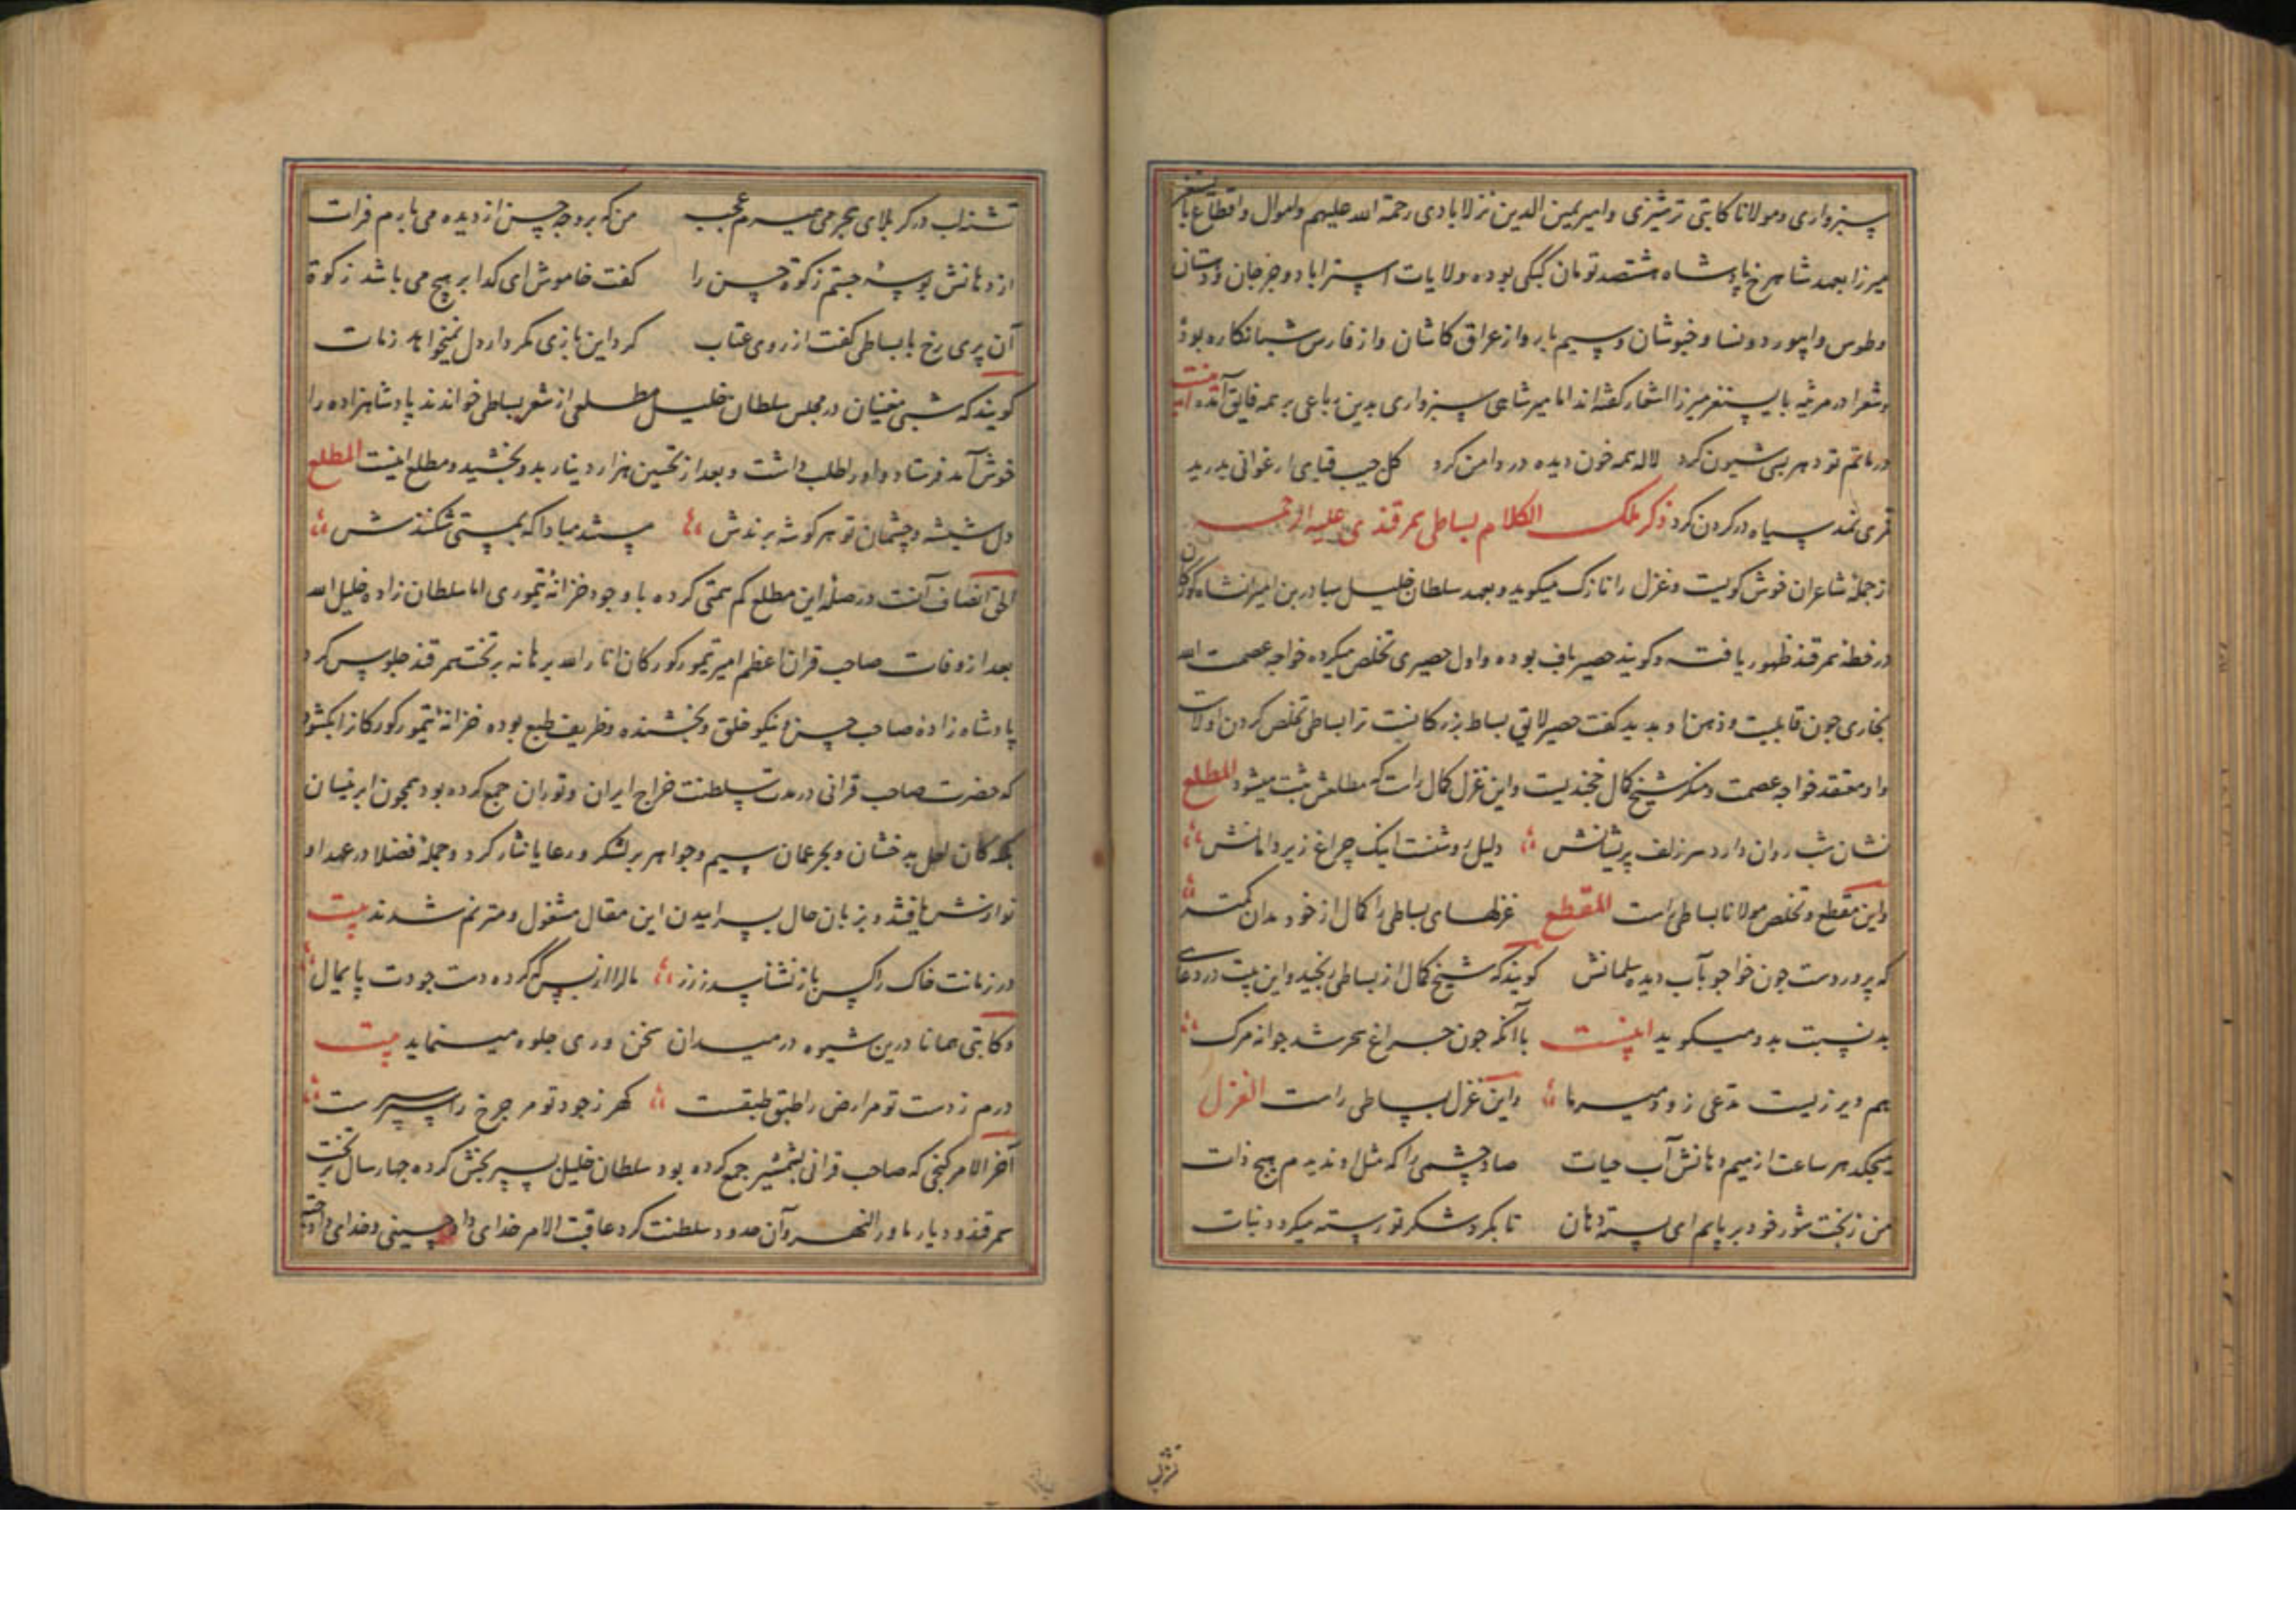 سبزواری و مولانا کاتبی ترشیزی و امیر یمین الدین نزلابادی رحمة الله علیهم و اموال و اقطاع بایسنغر
میرزا بعهد شاهرخ پادشاه ششصد تومان کپکی بوده ولایات استراباد و جرجان و دهستان
و طوس و ابیورد و نسا و خبوشان و سیم بار و از عراق کاشان و از فارس شبانکاره بوده
و شعرا در مرثیه بایسنغر میرزا اشعار کفته اند اما امیر شاهی سبزواری بدین رباعی بر همه فایق آمده
در ماتم تو دهر بسی شیون کرد لاله همه خون دیده در دامن کرد کل جیب قبای ارغوانی بدرید
قمری نمد سیاه در کردن کرد ذکر ملک الکلام بساطی سمرقندی علیه الرحمه
از جمله شاعران خوش کویست و غزل را نازک میکوید و بعهد سلطان خلیل بهادر بن امیرانشاه کورکان
در خطه سمرقند ظهور یافت و کویند حصیر باف بوده و اول حصیری تخلص میکرده خواجه عصمت الله
بخاری چون قابلیت و ذهن او بدید کفت حصیر لایق بساط بزرکان نیست ترا بساطی تخلص کردن اولاست
و او معتقد خواجه عصمت و منکر شیخ کمال خجندیست و این غزل کمال راست که مطلعش ثبت میشود المطلع
نشان شب روان دارد سر زلف پریشانش دلیل روشنست اینک چراغ زیر دامانش
و این مقطع و تخلص مولانا بساطی راست المقطع غزلهای بساطی را کمال از خود مدان کمتر
که پروردست چون خواجو بآب دیده سلمانش کویند که شیخ کمال از بساطی برنجید و این بیت در دعای
بد نسبت بدو میکوید اینست با آنکه چون چراغ سحر شد جوانه مرک
هم دیر زیست مدعی زود میر ما و این غزل بساطی راست الغزل
میچکد هر ساعت از میم دهانش آب حیات صاد چشمی را که مثل او ندیدم هیچ ذات
من ز بخت شور خود بریانم ای پسته دهان تا بکرد شکر تو رسته میکردد نبات
تشنه لب در کربلای هجر می میرم عجب من که بر وجه حسن از دیده می بارم فرات
از دهانش بوسه جستم زکوة حسن را کفت خاموش ای کدا بر هیچ می باشد زکوة
آن پری رخ با بساطی کفت از روی عتاب کرد این بازی مکر دار دل نمیخواهد زمات
کویند که شبی مغنیان در مجلس سلطان خلیل مطلعی از شعر بساطی خواندند پادشاهزاده را
خوش آمد فرستاد و او را طلب داشت و بعد از تحسین هزار دینار بدو بخشید و مطلع اینست المطلع
دل شیشه و چشمان تو هر کوشه برندش مستند مبادا که بمستی شکنندش
الحق انصاف آنست در صله این مطلع کم همتی کرده با وجود خزانه تیموری اما سلطان زاده خلیل الله
بعد از وفات صاحب قران اعظم امیر تیمور کورکان انار الله برهانه بر تخت سمرقند جلوس کرد
پادشاه زاده صاحب حسن و نیکو خلق و بخشنده و ظریف طبع بوده خزانه تیمور کورکان را بکشود
که حضرت صاحب قرانی در مدت سلطنت خراج ایران و توران جمع کرده بود همچون ابر نیسان
بلکه کان لعل بدخشان و بحر عمان سیم و جواهر بر لشکر و رعایا نثار کرد و جمله فضلا در عهد او
نوازش یافتند و بزبان حال بسراییدن این مقال مشغول و مترنم شدند بیت
در زمانت خاک را کس باز نشناسد ز زر مال را از بس که کرده دست جودت پایمال
و کاتبی همانا درین شیوه در میدان سخن وری جلوه مینماید بیت
درم ز دست تو مر ارض را طبق طبقست کهر ز جود تو مر چرخ را سپر سپرست
آخر الامر کنجی که صاحب قرانی بشمشیر جمع کرده بود سلطان خلیل بسپر بخش کرده چهار سال بر تخت
سمرقند و دیار ماوراء النهر و آن حدود سلطنت کرد عاقبت الامر خدای داد حسینی و خدای داد